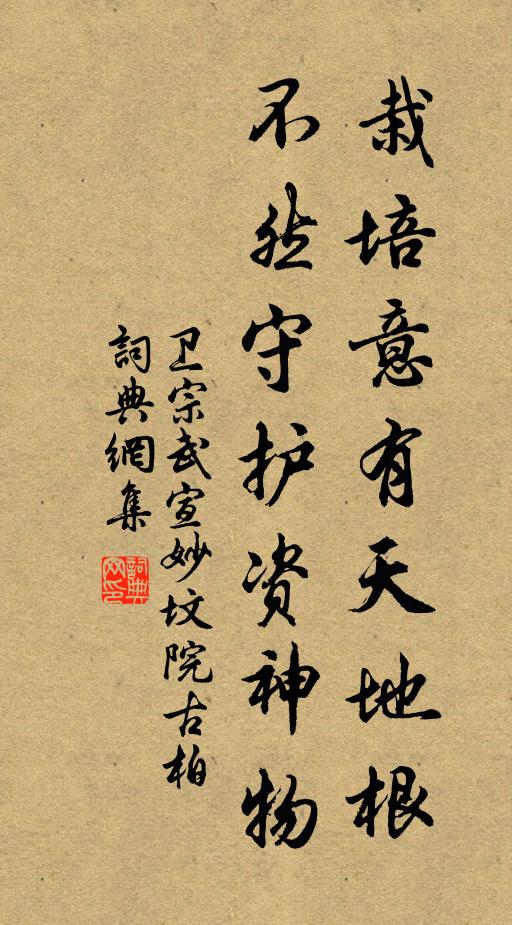 栽培意有天地根
不然守护资神物
卫宗武宣妙坟院古柏
詞典網集
詞典网印